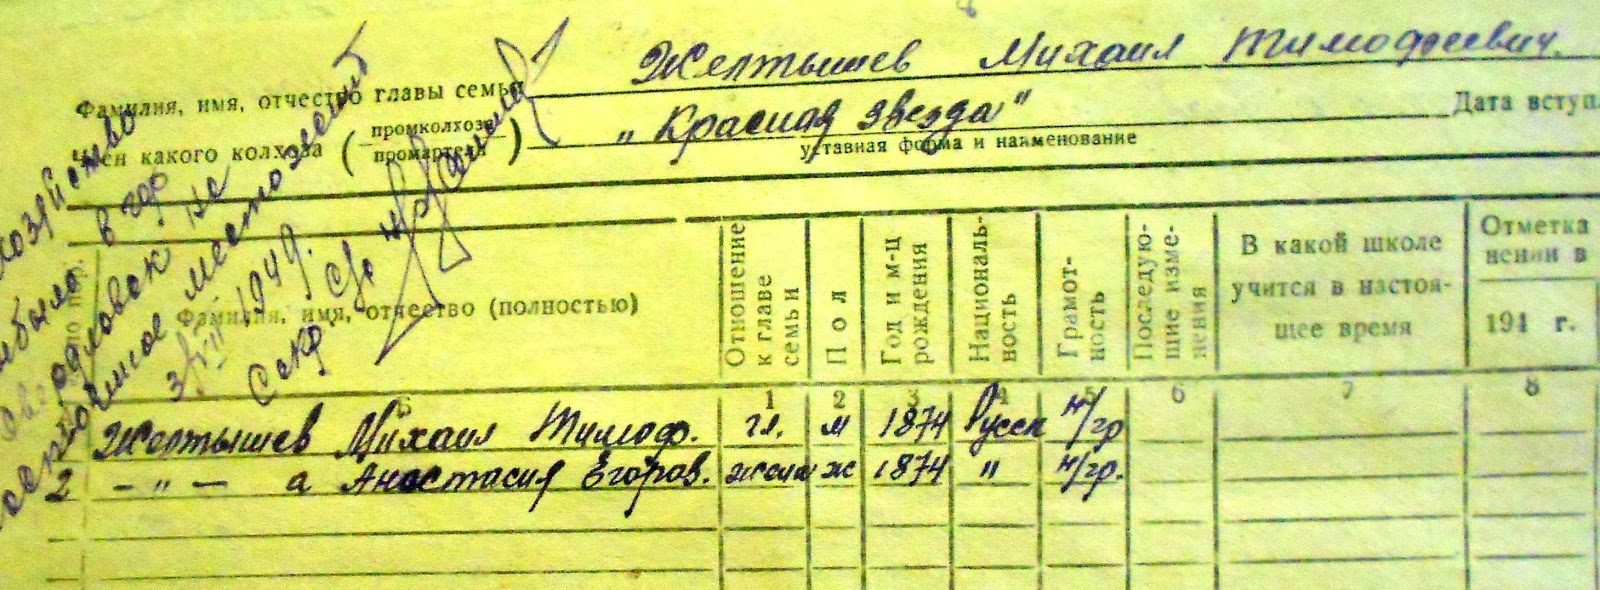 Фамилия, имя, отчество главы семьи Желтышев Михаил Тимофеевич.
Член какого колхоза (промколхоза промартели) „Красная звезда"
уставная форма и наименование
Дата вступ.
хозяйство
выбыло в гор
Свердловск на
постоянное местожит
3/VIII 1949.
Секр с/с
Фамилия, имя, отчество (полностью)
Отношение к главе семьи
Пол
Год и м-ц рождения
Националь-ность
Грамот-ность
Последую-шие изме-нения
В какой школе учится в настоя-щее время
Отметка
нении в
194 г.
1 2 3 4 5 6 7 8
Желтышев Михаил Тимоф. гл. м 1874 Русск н/гр
2 – „ – а Анастасия Егоров. жена ж 1874 „ н/гр.